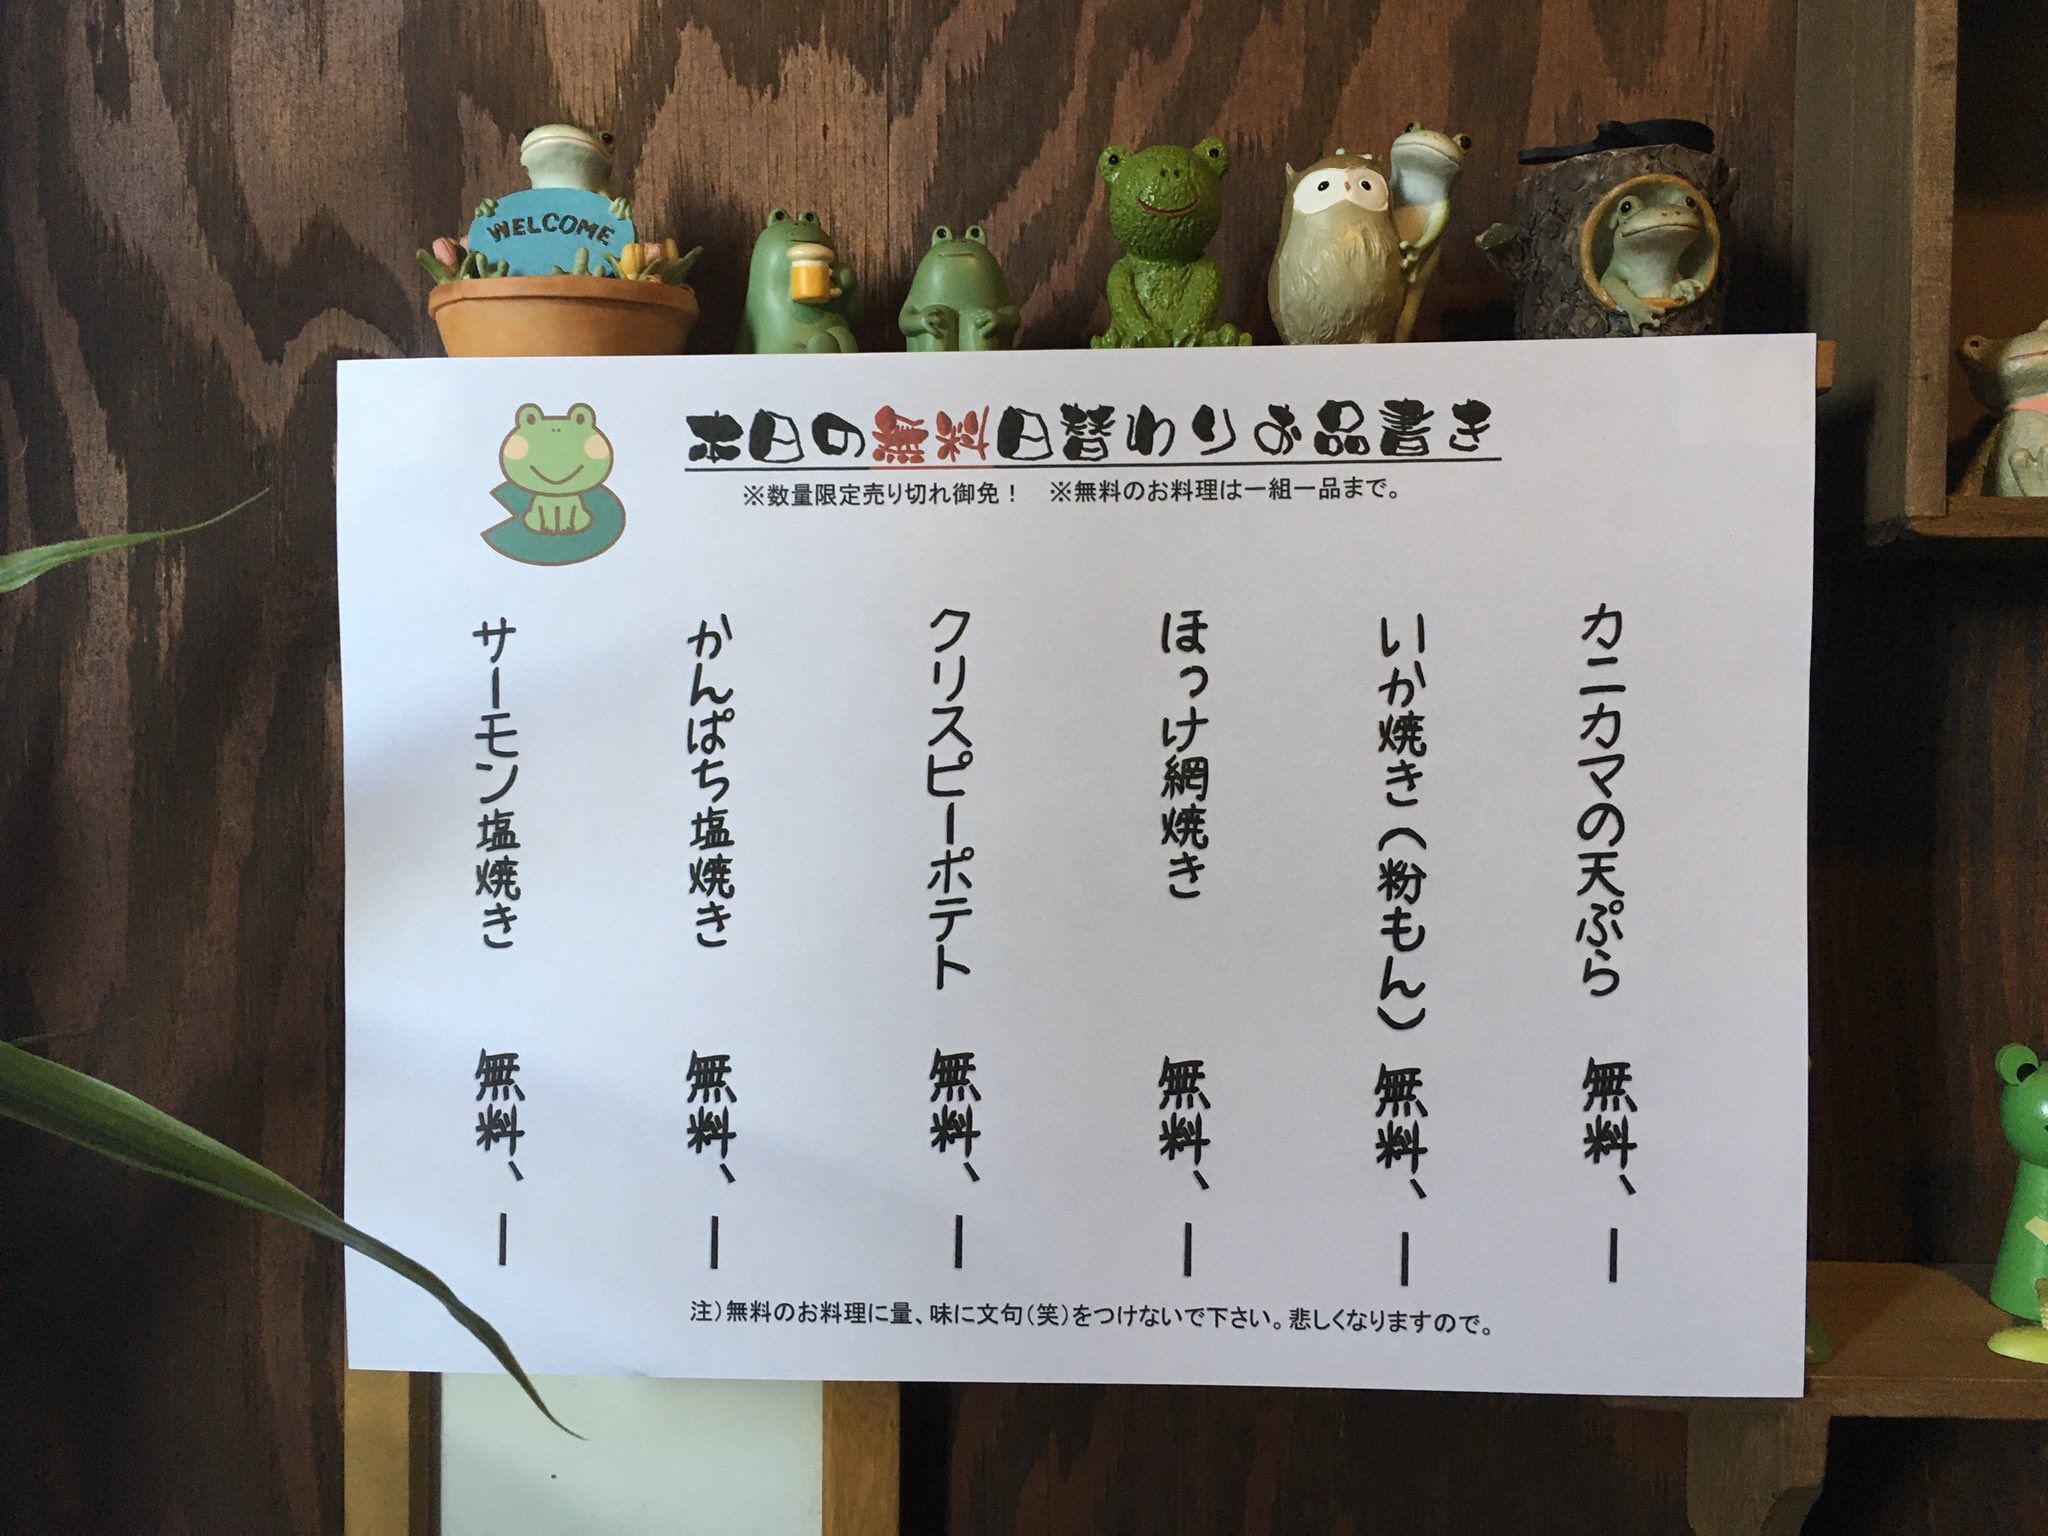 WELCOME
本日の無料日替わりお品書き
※数量限定売り切れ御免！　※無料のお料理は一組一品まで。
カニカマの天ぷら　無料、ー
いか焼き（粉もん）無料、ー
ほっけ網焼き　無料、ー
クリスピーポテト　無料、ー
かんぱち塩焼き　無料、ー
サーモン塩焼き　無料、ー
注）無料のお料理に量、味に文句（笑）をつけないで下さい。悲しくなりますので。